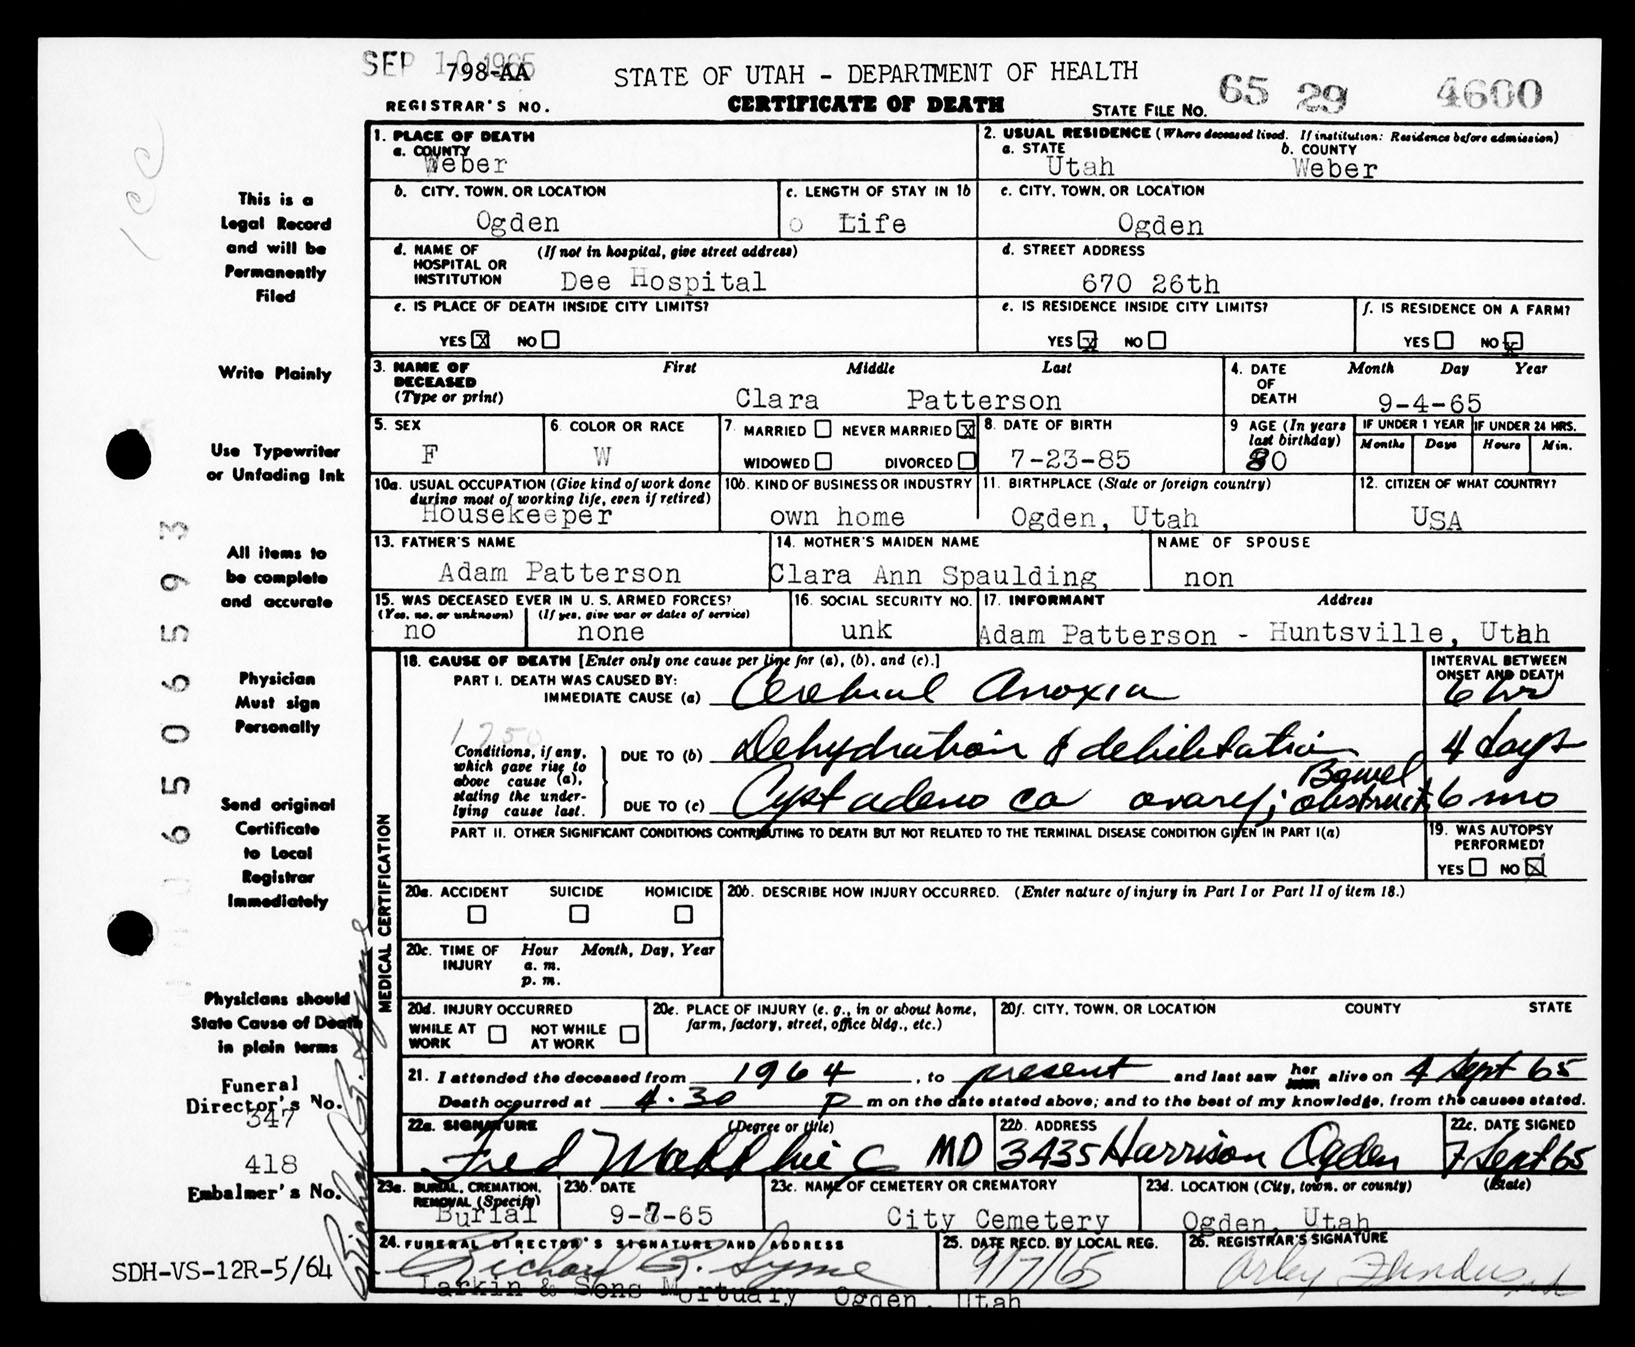 SEP 10 1965
798-AA
REGISTRAR'S NO.
STATE OF UTAH - DEPARTMENT OF HEALTH
CERTIFICATE OF DEATH
STATE FILE NO. 65 29 4600
1 cc
This is a
Legal Record
and will be
Permanently
Filed
Write Plainly
Use Typewriter
or Unfading Ink
All items to
be complete
and accurate
Physician
Must sign
Personally
Send original
Certificate
to Local
Registrar
Immediately
Physicians should
State Cause of Death
in plain terms
Funeral
Director's No.
347
418
Embalmer's No.
SDH-VS-12R-5/64
1. PLACE OF DEATH
a. COUNTY
Weber
2. USUAL RESIDENCE (Where deceased lived. If institution: Residence before admission)
a. STATE b. COUNTY
Utah Weber
b. CITY, TOWN, OR LOCATION
Ogden
c. LENGTH OF STAY IN 1b
Life
c. CITY, TOWN, OR LOCATION
Ogden
d. NAME OF HOSPITAL OR INSTITUTION (If not in hospital, give street address)
Dee Hospital
d. STREET ADDRESS
670 26th
e. IS PLACE OF DEATH INSIDE CITY LIMITS?
YES X NO
e. IS RESIDENCE INSIDE CITY LIMITS?
YES X NO
f. IS RESIDENCE ON A FARM?
YES NO X
3. NAME OF DECEASED (Type or print) First Middle Last
Clara Patterson
4. DATE OF DEATH Month Day Year
9-4-65
5. SEX
F
6. COLOR OR RACE
W
7. MARRIED NEVER MARRIED X
WIDOWED DIVORCED
8. DATE OF BIRTH
7-23-85
9 AGE (In years last birthday)
80
IF UNDER 1 YEAR IF UNDER 24 HRS.
Months Days Hours Min.
10a. USUAL OCCUPATION (Give kind of work done during most of working life, even if retired)
Housekeeper
10b. KIND OF BUSINESS OR INDUSTRY
own home
11. BIRTHPLACE (State or foreign country)
Ogden, Utah
12. CITIZEN OF WHAT COUNTRY?
USA
13. FATHER'S NAME
Adam Patterson
14. MOTHER'S MAIDEN NAME
Clara Ann Spaulding
NAME OF SPOUSE
non
15. WAS DECEASED EVER IN U. S. ARMED FORCES?
(Yes, no, or unknown) (If yes, give war or dates of service)
no none
16. SOCIAL SECURITY NO.
unk
17. INFORMANT Address
Adam Patterson - Huntsville, Utah
MEDICAL CERTIFICATION
18. CAUSE OF DEATH [Enter only one cause per line for (a), (b), and (c).]
INTERVAL BETWEEN ONSET AND DEATH
PART I. DEATH WAS CAUSED BY:
IMMEDIATE CAUSE (a) Cerebral Anoxia 6 hrs
Conditions, if any, which gave rise to above cause (a), stating the underlying cause last.
DUE TO (b) Dehydration & debilitation 4 days
DUE TO (c) Cystadeno ca ovary; Bowel obstruct 6 mo
PART II. OTHER SIGNIFICANT CONDITIONS CONTRIBUTING TO DEATH BUT NOT RELATED TO THE TERMINAL DISEASE CONDITION GIVEN IN PART I(a)
19. WAS AUTOPSY PERFORMED?
YES NO X
20a. ACCIDENT SUICIDE HOMICIDE
20b. DESCRIBE HOW INJURY OCCURRED. (Enter nature of injury in Part I or Part II of item 18.)
20c. TIME OF INJURY Hour Month, Day, Year
a. m.
p. m.
20d. INJURY OCCURRED
WHILE AT WORK NOT WHILE AT WORK
20e. PLACE OF INJURY (e. g., in or about home, farm, factory, street, office bldg., etc.)
20f. CITY, TOWN, OR LOCATION COUNTY STATE
21. I attended the deceased from 1964, to present and last saw her alive on 4 Sept 65
Death occurred at 4:30 P m on the date stated above; and to the best of my knowledge, from the causes stated.
22a. SIGNATURE (Degree or title)
Fred MD
22b. ADDRESS
3435 Harrison Ogden
22c. DATE SIGNED
7 Sept 65
23a. BURIAL, CREMATION, REMOVAL (Specify)
Burial
23b. DATE
9-7-65
23c. NAME OF CEMETERY OR CREMATORY
City Cemetery
23d. LOCATION (City, town, or county) (State)
Ogden, Utah
24. FUNERAL DIRECTOR'S SIGNATURE AND ADDRESS
Richard
Larkin & Sons Mortuary Ogden, Utah
25. DATE RECD. BY LOCAL REG.
9/7/65
26. REGISTRAR'S SIGNATURE